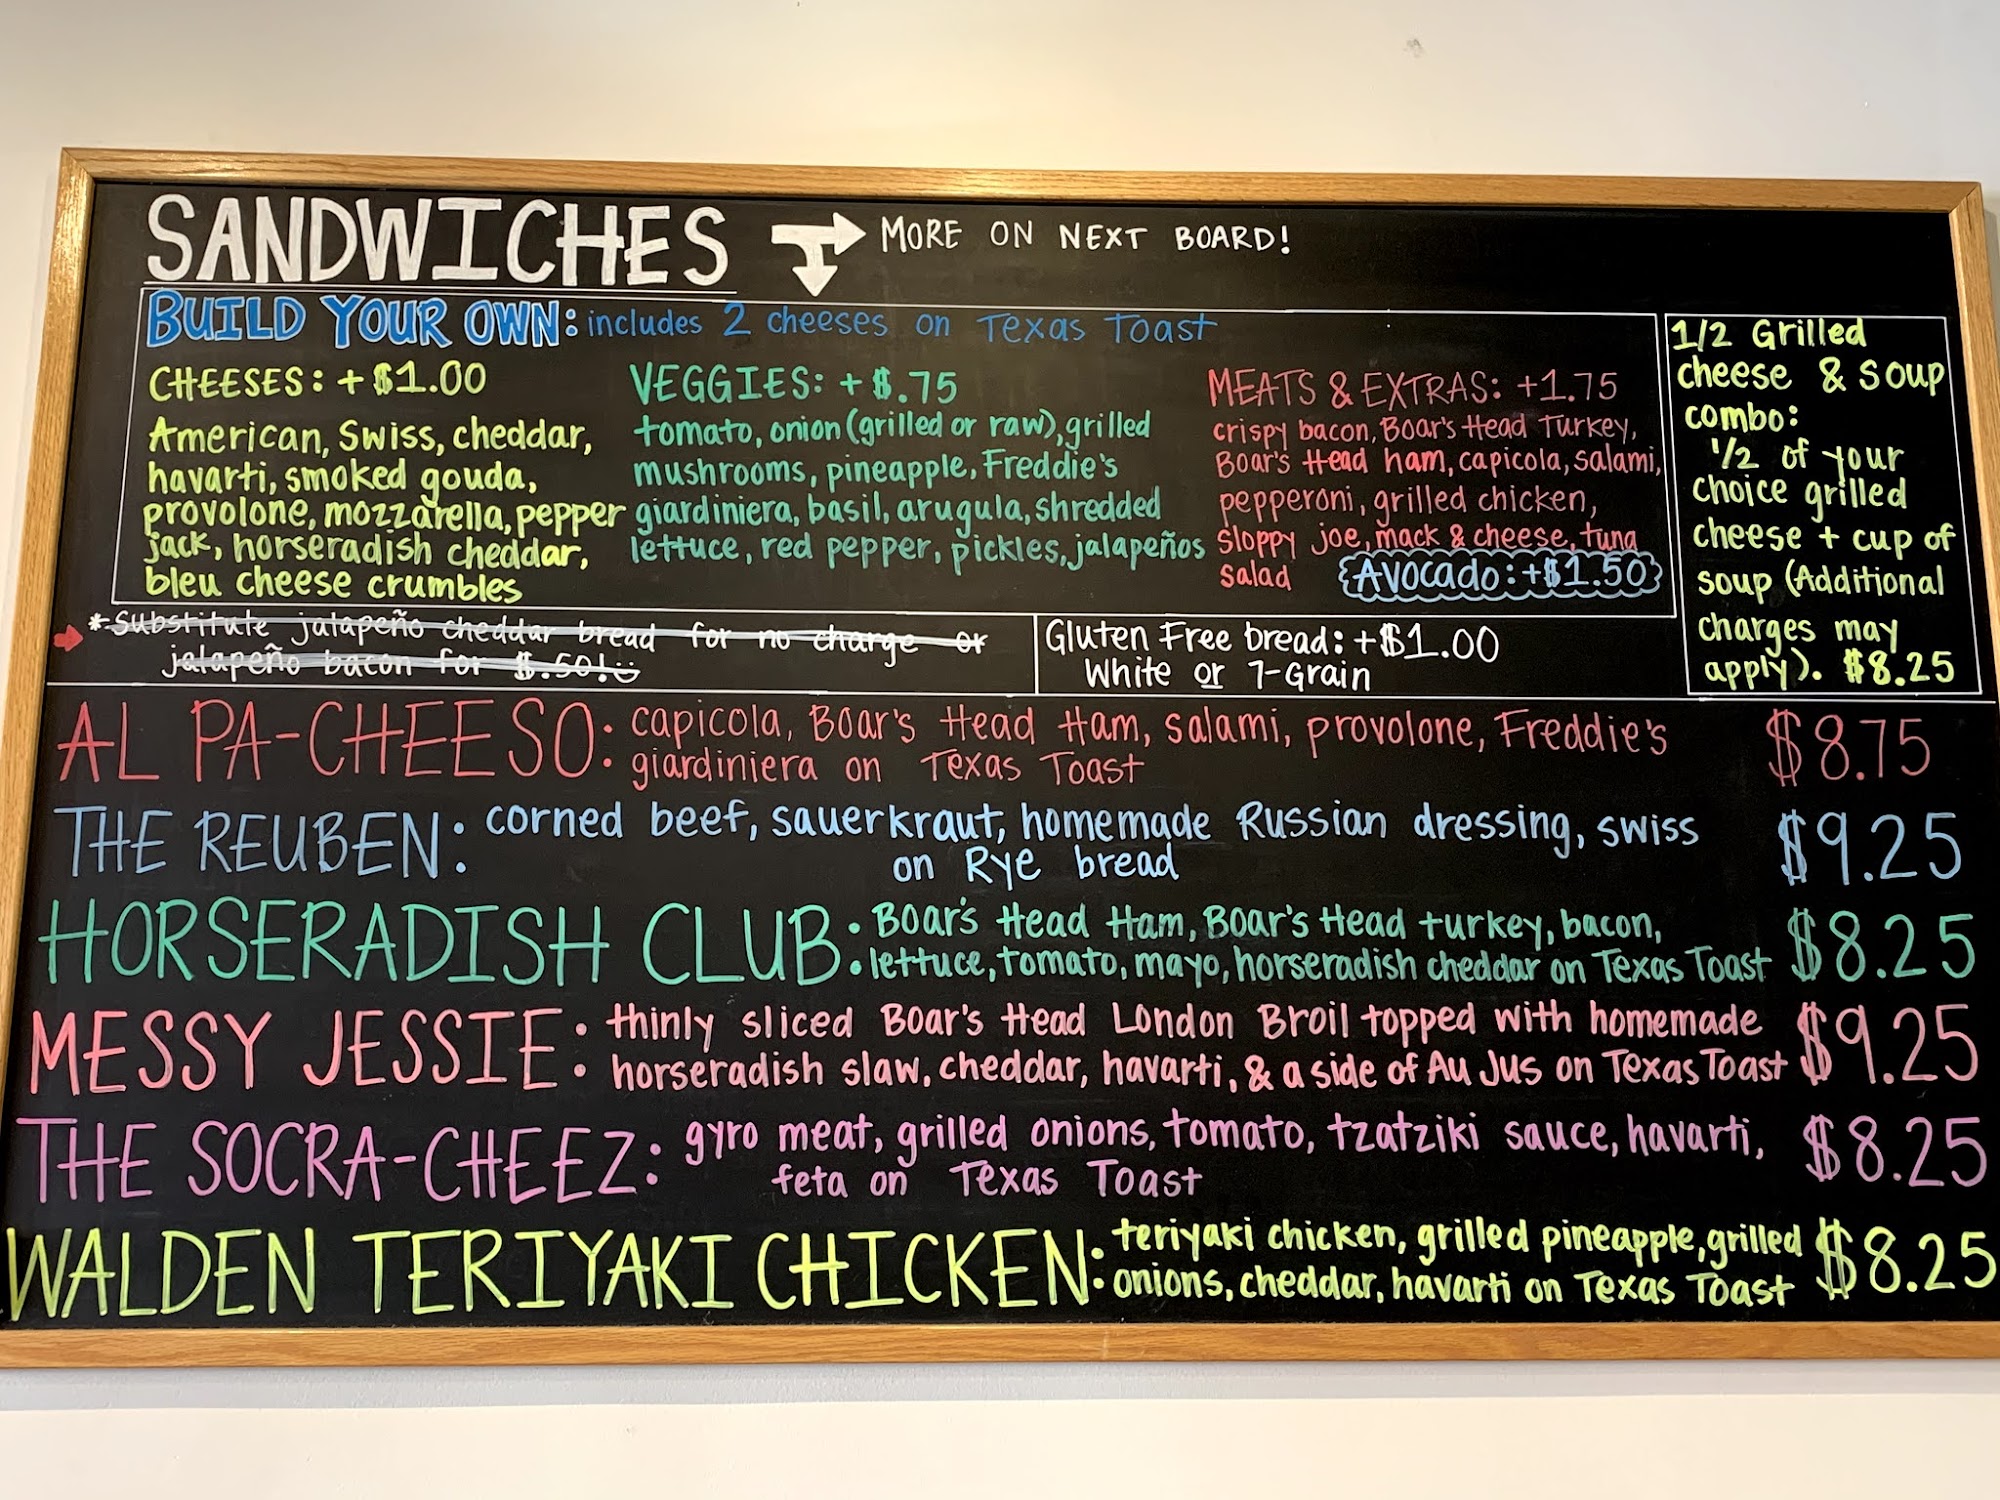 SANDWICHES MORE ON NEXT BOARD!
BUILD YOUR OWN: includes 2 cheeses on Texas Toast
CHEESES: +$1.00
American, Swiss, cheddar,
havarti, smoked gouda,
provolone, mozzarella, pepper
jack, horseradish cheddar,
bleu cheese crumbles
VEGGIES: +$.75
tomato, onion (grilled or raw), grilled
mushrooms, pineapple, Freddie's
giardiniera, basil, arugula, shredded
lettuce, red pepper, pickles, jalapeños
MEATS & EXTRAS: +1.75
crispy bacon, Boar's Head Turkey,
Boar's Head ham, capicola, salami,
pepperoni, grilled chicken,
sloppy joe, mack & cheese, tuna
salad
Avocado: +$1.50
1/2 Grilled
cheese & soup
combo:
1/2 of your
choice grilled
cheese + cup of
soup (Additional
charges may
apply). $8.25
*Substitute jalapeño cheddar bread for no charge or
jalapeño bacon for $.50!
Gluten Free bread: +$1.00
White or 7-Grain
AL PA-CHEESO: capicola, Boar's Head Ham, salami, provolone, Freddie's
giardiniera on Texas Toast
$8.75
THE REUBEN: corned beef, sauerkraut, homemade Russian dressing, swiss
on Rye bread
$9.25
HORSERADISH CLUB: Boar's Head Ham, Boar's Head turkey, bacon,
lettuce, tomato, mayo, horseradish cheddar on Texas Toast
$8.25
MESSY JESSIE: thinly sliced Boar's Head London Broil topped with homemade
horseradish slaw, cheddar, havarti, & a side of Au Jus on Texas Toast
$9.25
THE SOCRA-CHEEZ: gyro meat, grilled onions, tomato, tzatziki sauce, havarti,
feta on Texas Toast
$8.25
WALDEN TERIYAKI CHICKEN: teriyaki chicken, grilled pineapple, grilled
onions, cheddar, havarti on Texas Toast
$8.25